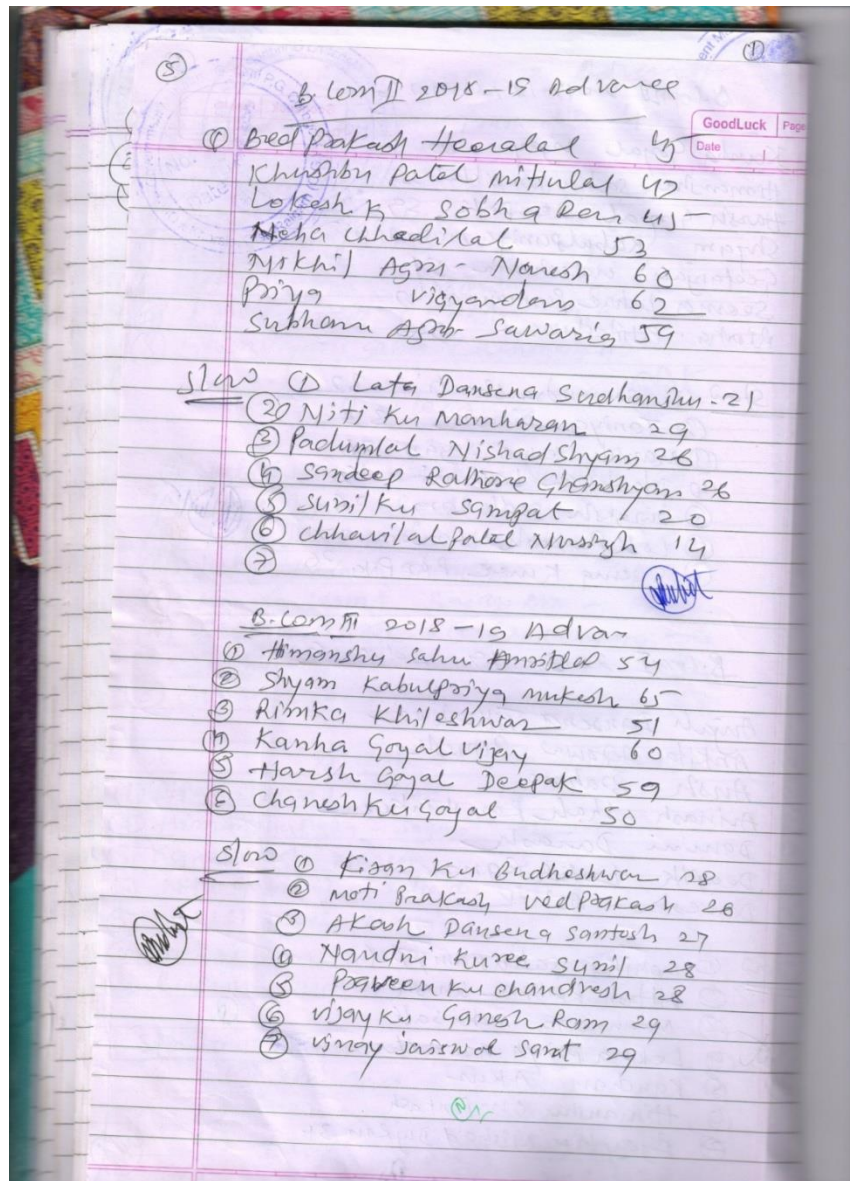 5
1
B. Com II 2018-19 Advance
GoodLuck Page
Date
① Bred Prakash Heeralal 45
Khushbu Patel Mithulal 47
Lokesh K Sobha Ram 41
Neha Chhadilal 53
Nikhil Agra- Naresh 60
Priya Vigyandas 62
Subham Agra- Sawaria 59
Slow ① Lata Dansena Sudhanihu - 21
② Niti Ku Manharan 29
③ Padumlal Nishad Shyam 26
④ Sandeep Rathore Ghanshyam 26
⑤ Sunil Ku Sampat 20
⑥ Chhavilal Patel 14
⑦
B. Com III 2018-19 Advan
① Himanshu Sahu 54
② Shyam Kabulpriya mukesh 65
③ Rimka Khileshwar 51
④ Kanha Goyal Vijay 60
⑤ Harsh Goyal Deepak 59
⑥ Chanesh Ku Goyal 50
Slow ① Kiran Ku Budheshwar 28
② Moti Prakash Ved Prakash 26
③ Akash Dansena Santosh 27
④ Nandni Kuree Sunil 28
⑤ Praveen Ku Chandresh 28
⑥ Vijay Ku Ganesh Ram 29
⑦ Vinay Jaiswal Sarat 29